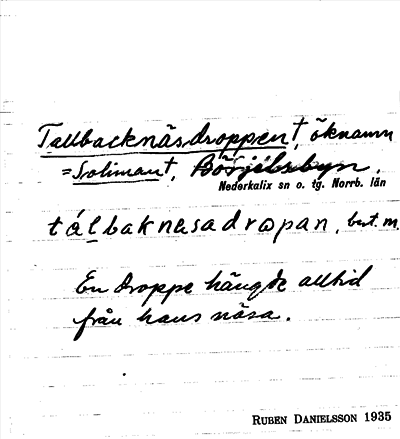 Tallbacknäsdroppen†, öknamn
= Soliman†, Börjelsbyn,
Nederkalix sn o. tg. Norrb. län
tálbaknasadropan, best. m.
En droppe hängde alltid
från hans näsa.
RUBEN DANIELSSON 1935